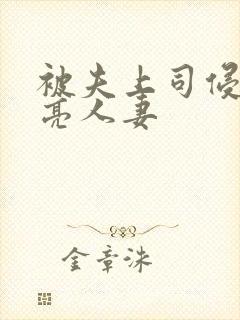 被夫上司侵
亮人妻
金章洙